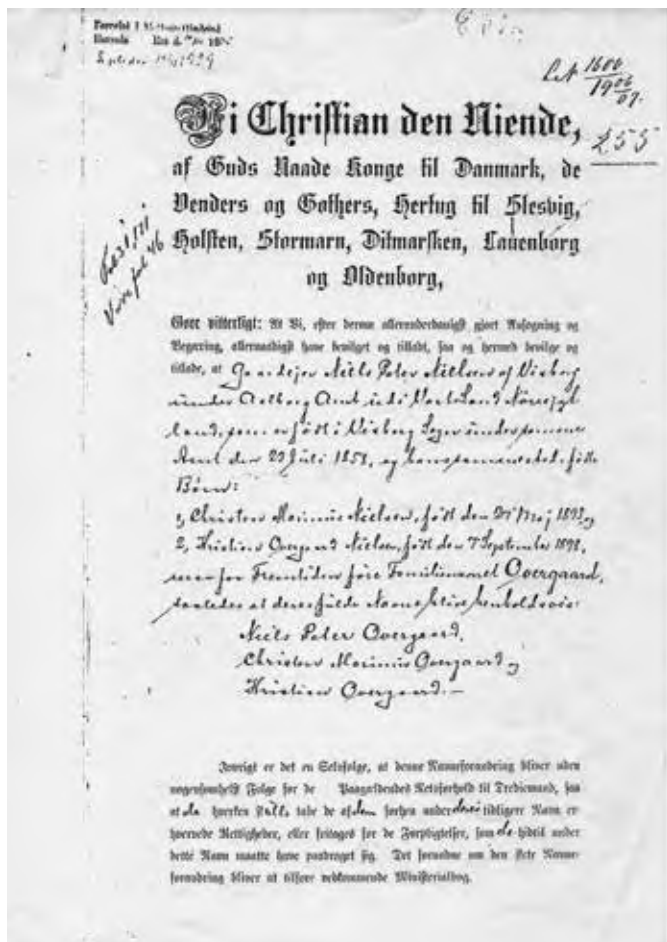 1606
1906
07.
255
Vi Christian den Niende,
af Guds Naade Konge til Danmark, de
Venders og Gothers, Hertug til Slesvig,
Holsten, Stormarn, Ditmarsken, Lauenborg
og Oldenborg,
Gøre vitterligt: At Vi, efter derom allerunderdanigst gjort Ansøgning og
Begæring, allernaadigst have bevilget og tilladt, saa og hermed bevilge og
tillade, at Gaardejer Niels Peter Nielsen af Visborg
under Aalborg Amt udi Vort Land Nørrejyl
land, som er født i Visborg Sogn under samme
Amt den 23 Juli 1853, og hans
Børn:
1, Christen Marinus Nielsen, født den Maj 1893 og
2, Kristian Overgaard Nielsen, født den 7 September 1898,
maa for Fremtiden føre Familienavnet Overgaard,
saaledes at deres fulde Navne blive henholdsvis:
Niels Peter Overgaard,
Christen Marinus Overgaard og
Kristian Overgaard. —
Iøvrigt er det en Selvfølge, at denne Navneforandring bliver uden
nogensomhelst Følge for de Paagældendes Retsforhold til Tredjemand, saa
at de hverken skulle tabe de af dem forhen under deres tidligere Navn er
hvervede Rettigheder, eller fritages for de Forpligtelser, som de hidtil under
dette Navn maatte have paadraget sig. Det fornødne om den skete Navne-
forandring bliver at tilføre vedkommende Ministerialbog.